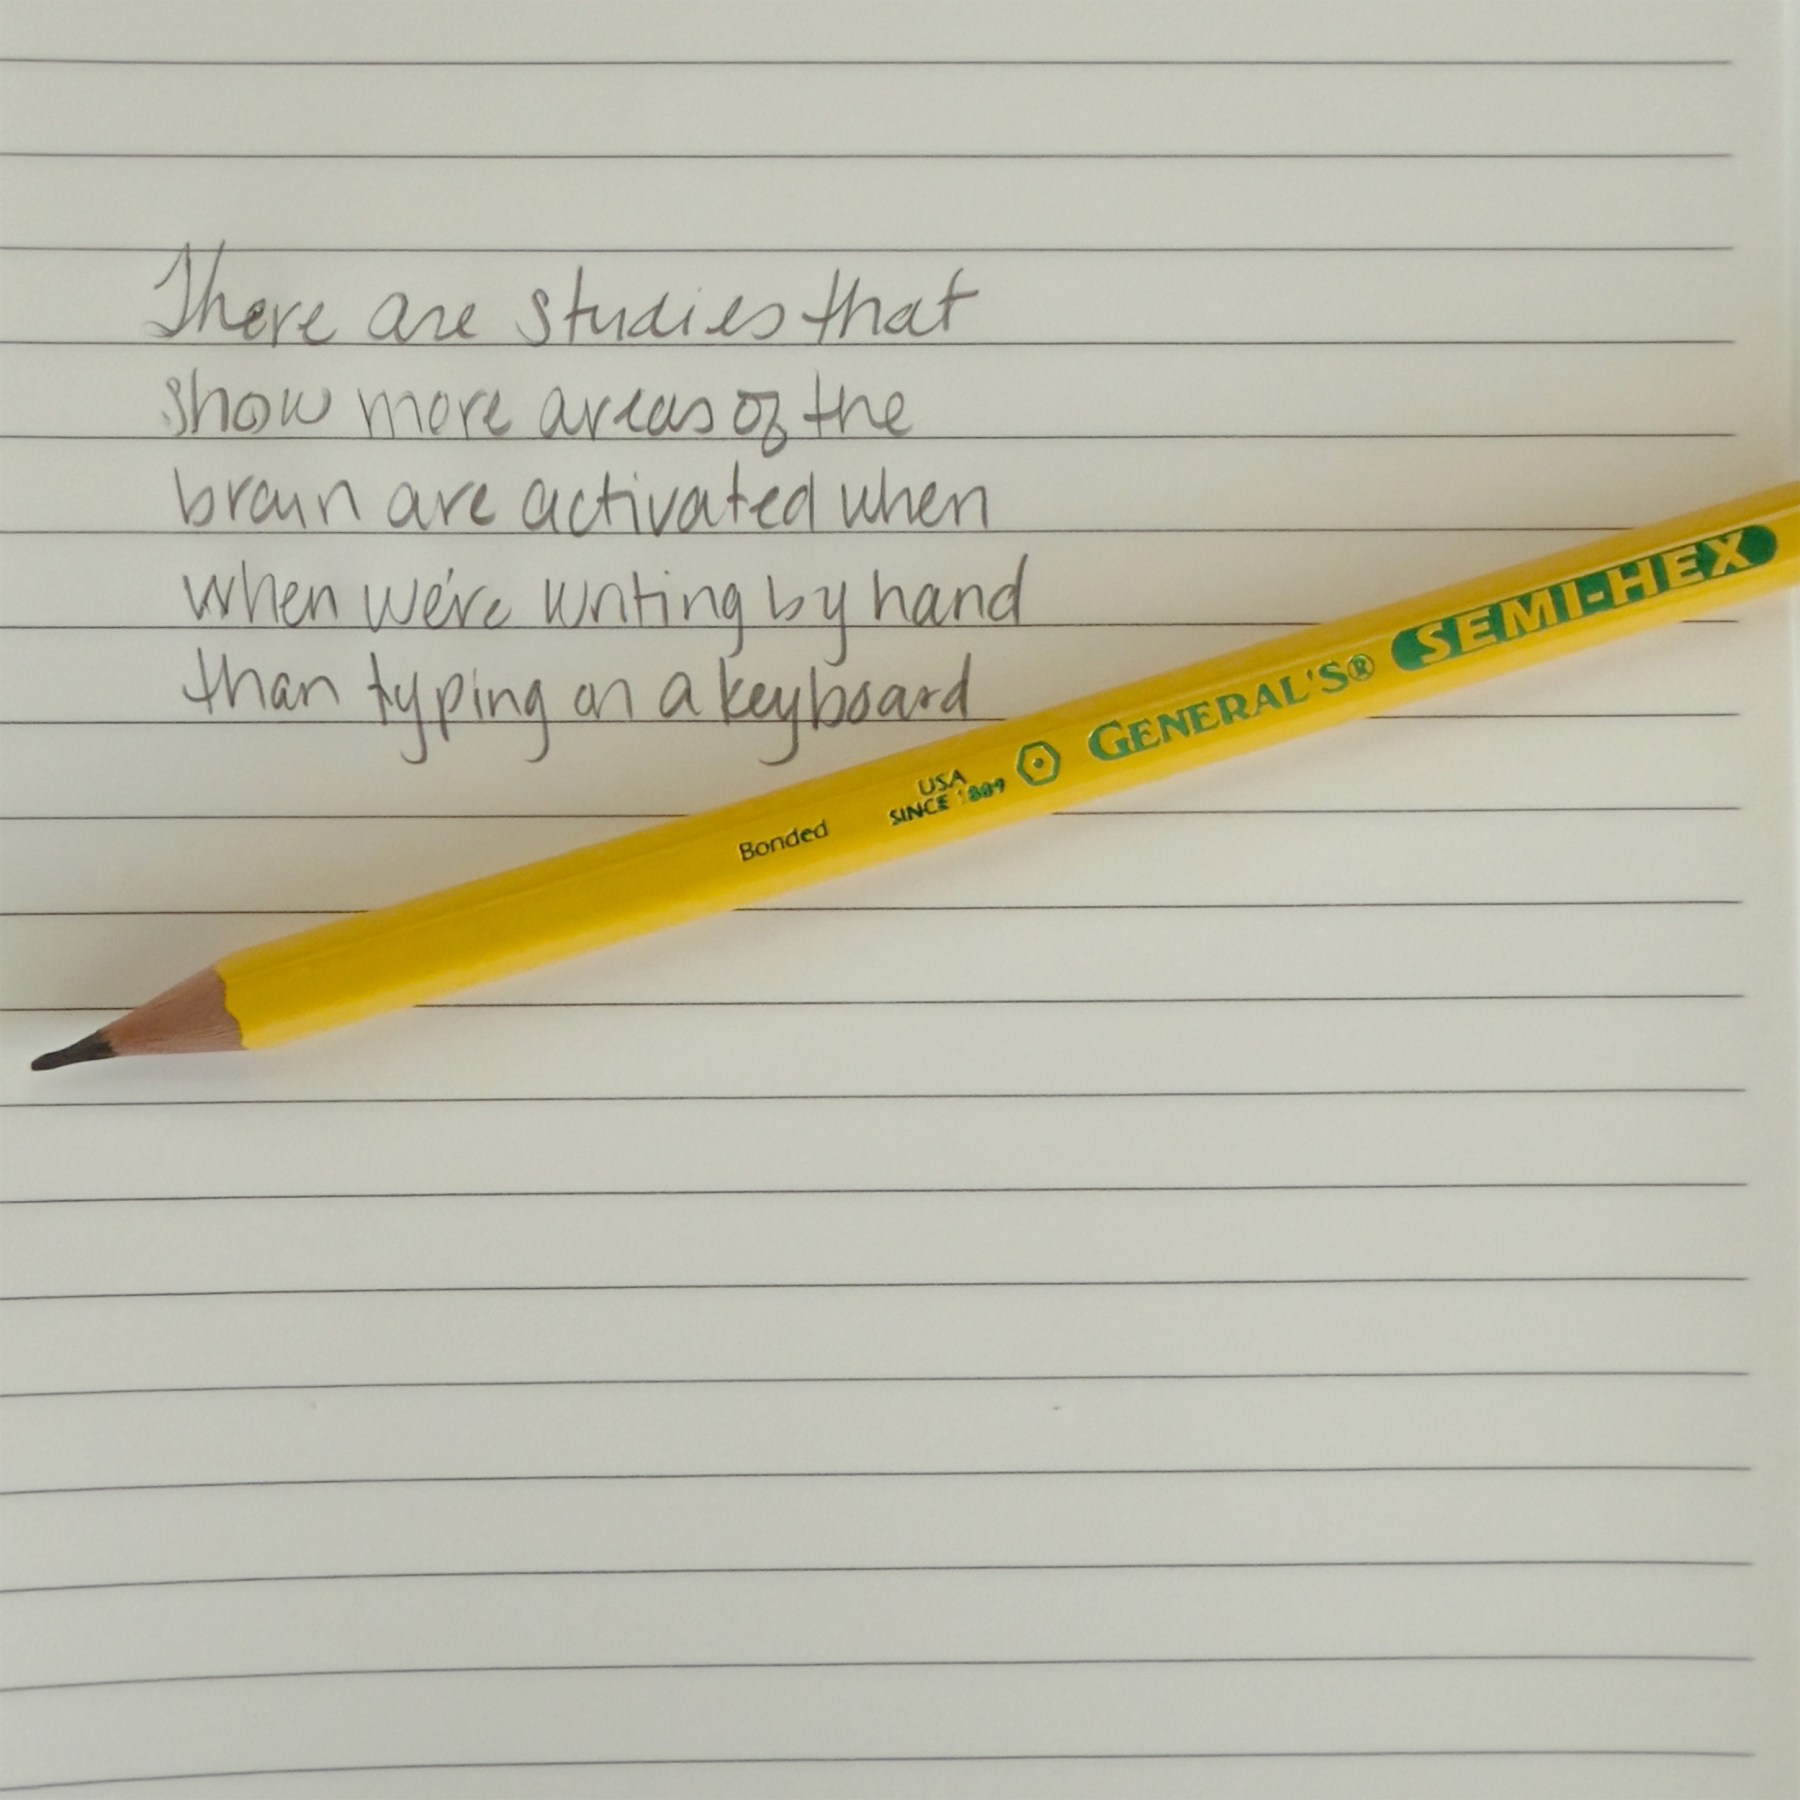 There are studies that
show more areas of the
brain are activated when
when we're writing by hand
than typing on a keyboard
Bonded
USA
SINCE 1889
GENERAL'S®
SEMI-HEX